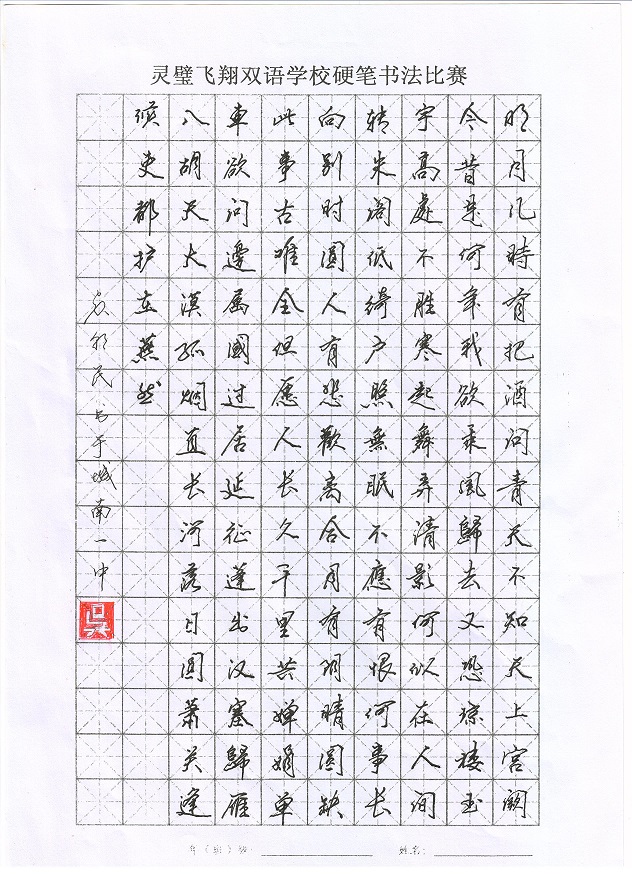 灵璧飞翔双语学校硬笔书法比赛
明月几時有把酒問青天不知天上宮闕
今昔是何年我欲乘風歸去又恐琼楼玉
宇高處不胜寒起舞弄清影何似在人间
转朱阁低绮户照無眠不應有恨何事长
向别时圆人有悲歡离合月有阴晴圆缺
此事古难全但愿人长久千里共婵娟单
車欲问邊属國过居延征蓬出汉塞歸雁
入胡天大漠孤烟直长河落日圆萧关逢
候吏都护在燕然
民书于城南一中
吴
年（班）级：
姓名：